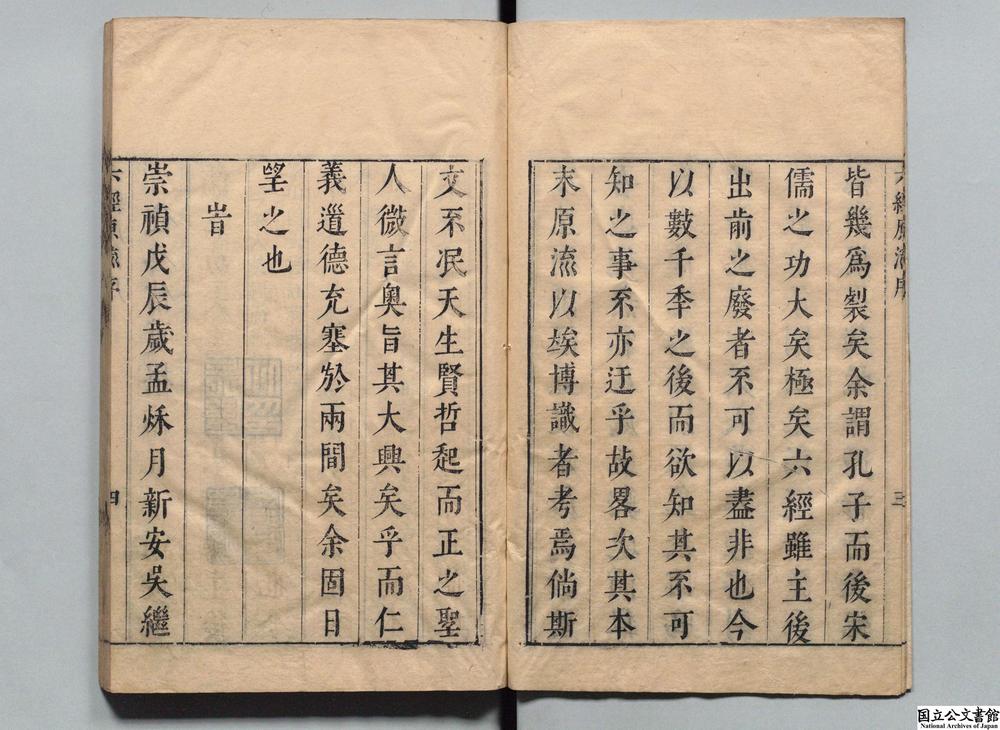 六經原流序
三
皆幾爲製矣余謂孔子而後宋
儒之功大矣極矣六經雖主後
出前之廢者不可以盡非也今
以數千秊之後而欲知其不可
知之事不亦迂乎故畧次其本
末原流以俟博識者考焉倘斯
文不泯天生賢哲起而正之聖
人微言奧旨其大興矣乎而仁
義道德充塞於兩間矣余固日
望之也
旹
崇禎戊辰歲孟秌月新安吳繼
六經原流序
四
国立公文書館
National Archives of Japan